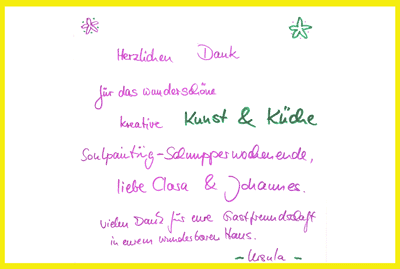 Herzlichen Dank
für das wunderschöne
kreative Kunst & Küche
Soulpainting-Schnupperwochenende,
liebe Clasa & Johannes.
vielen Dank für eure Gastfreundschaft
in eurem wunderbaren Haus.
- Ursula -